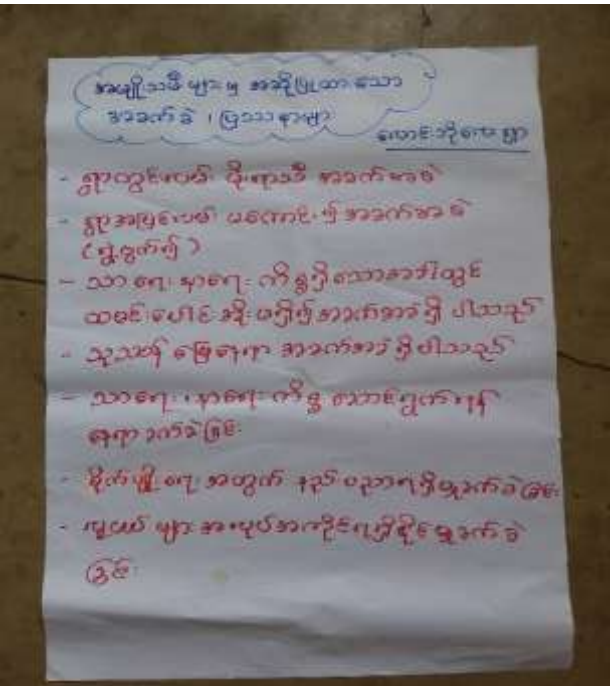 အမျိုးသမီးများမှ အဆိုပြုထားသော
အခက်ခဲ ၊ ပြဿနာများ
- ရွာတွင်းလမ်း မိုးရာသီ အခက်အခဲ
- ရွာအပြင်လမ်း မကောင်း၍ အခက်အခဲ
( ရွှံ့ထွက်၍ )
- သာရေး နာရေး ကိစ္စရှိသောအခါတွင်
ထမင်းပေါင်းအိုး မရှိ၍ အခက်အခဲ ရှိ ပါသည်
- သုသာန် မြေနေရာ အခက်အခဲ ရှိပါသည်
- သာရေး ၊ နာရေး ကိစ္စ ဆောင်ရွက်ရန်
နေရာ ခက်ခဲခြင်း
- စိုက်ပျိုးရေး အတွက် နည်းပညာရရှိမှုခက်ခဲခြင်း
- လူငယ် များ အလုပ်အကိုင်ရရှိနိုင်မှု ခက်ခဲ
ခြင်း